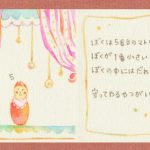 5
ぼくは5番目のマト
ぼくが1番小さい
ぼくの中にはだれ
守ってあるやつがい